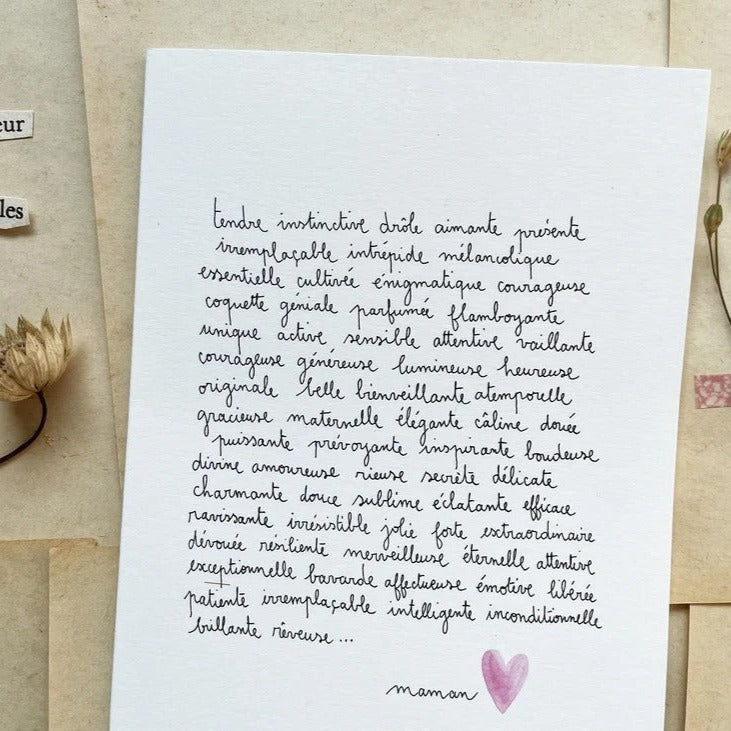 eur
les
tendre instinctive drôle aimante présente
irremplaçable intrépide mélancolique
essentielle cultivée énigmatique courageuse
coquette géniale parfumée flamboyante
unique active sensible attentive vaillante
courageuse généreuse lumineuse heureuse
originale belle bienveillante atemporelle
gracieuse maternelle élégante câline douée
puissante prévoyante inspirante boudeuse
divine amoureuse rieuse secrète délicate
charmante douce sublime éclatante efficace
ravissante irrésistible jolie forte extraordinaire
dévouée résiliente merveilleuse éternelle attentive
exceptionnelle bavarde affectueuse émotive libérée
patiente irremplaçable intelligente inconditionnelle
brillante rêveuse...
maman